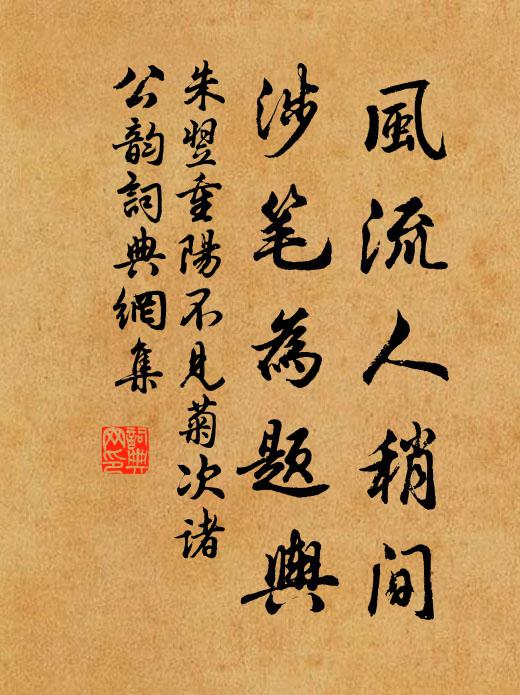 風流人稍间
涉笔為题輿
朱翌重陽不見菊次诸
公韵詞典網集
詞典
网印